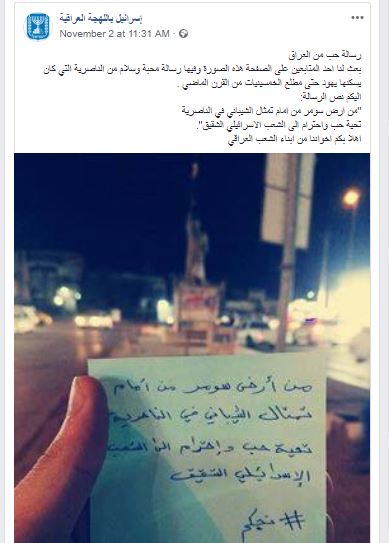 إسرائيل باللهجة العراقية
November 2 at 11:31 AM ·
رسالة حب من العراق
بعث لنا احد المتابعين على الصفحة هذه الصورة وفيها رسالة محبة وسلام من الناصرية التي كان
يسكنها يهود حتى مطلع الخمسينيات من القرن الماضي .
اليكم نص الرسالة:
"من ارض سومر من امام تمثال الشيباني في الناصرية
تحية حب واحترام الى الشعب الاسرائيلي الشقيق".
اهلا بكم اخواننا من ابناء الشعب العراقي
من أرض سومر من أمام
تمثال الشيباني في الناصرية
تحية حب وإحترام الى الشعب
الإسرائيلي الشقيق
# نحبكم